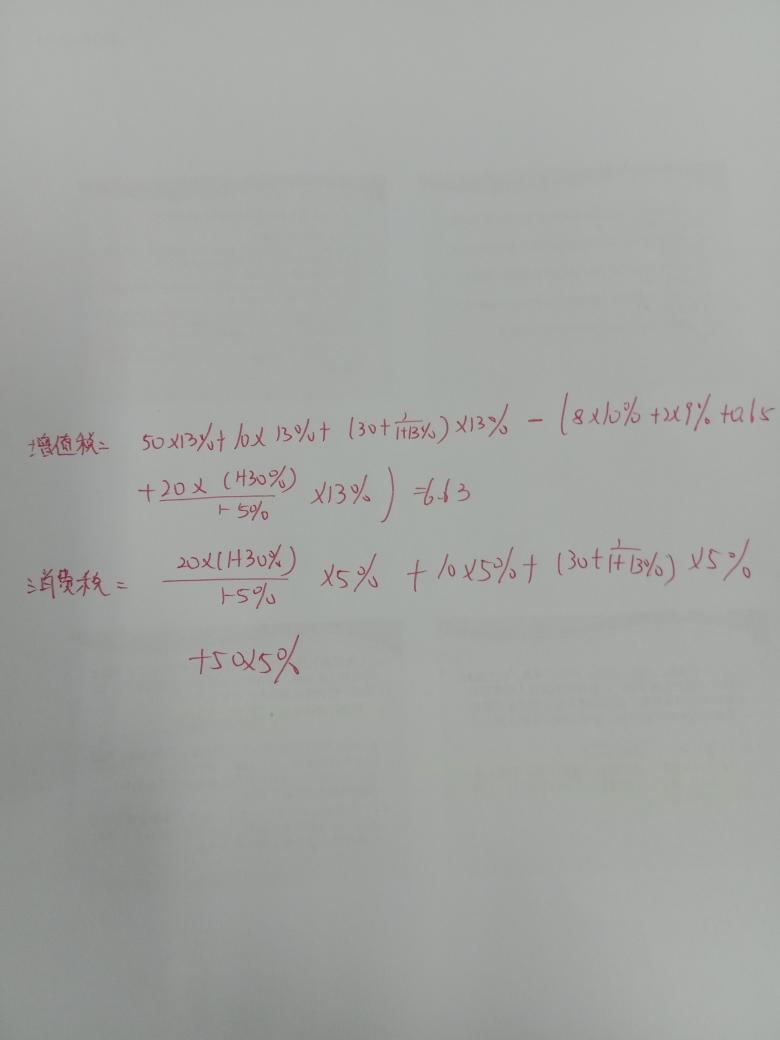 增值税= 50×13%+10×13%+(30+\frac{1}{1+13%})×13%-(8×10%+2×9%+0.65
+\frac{20×(1+30%)}{1-5%}×13%)=6.63
消费税=\frac{20×(1+30%)}{1-5%}×5%+10×5%+(30+\frac{1}{1+13%})×5%
+50×5%